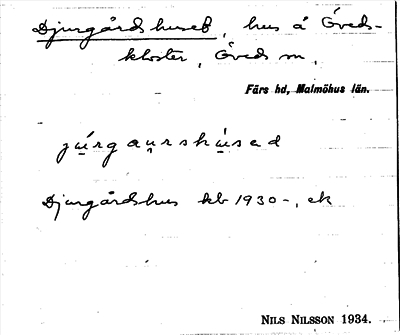 Djurgårdshuset, hus å Öveds-
kloster, Öveds sn,
Färs hd, Malmöhus län.
júrgaurshùsəd
Djurgårdshus kb 1930-, ek
NILS NILSSON 1934.